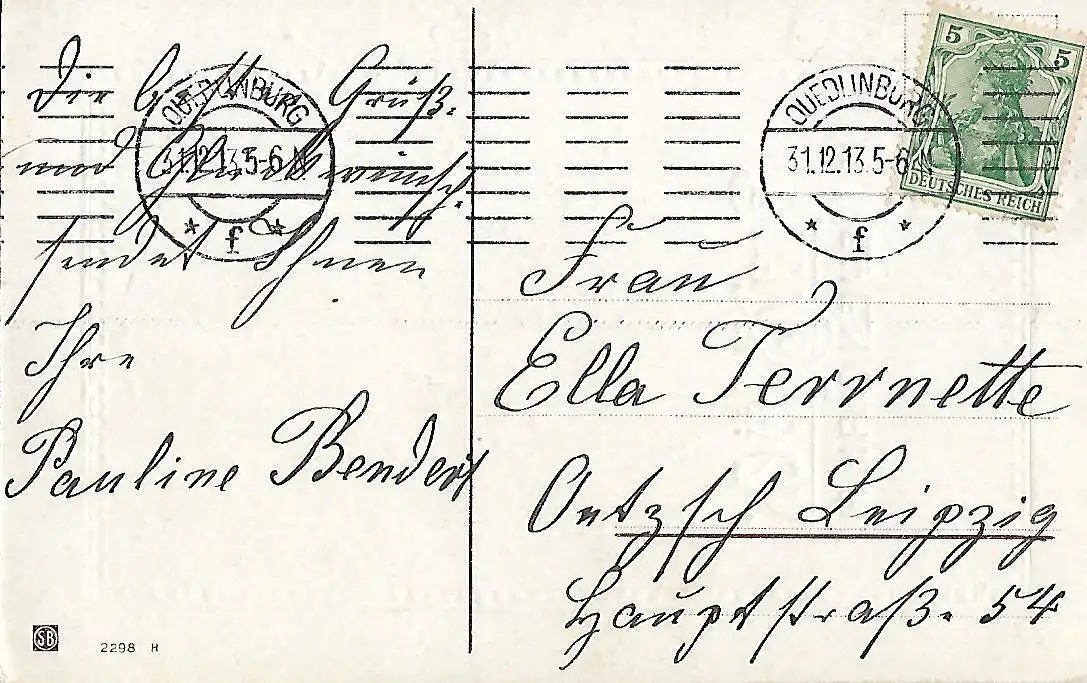 Die besten Grüß.
und Glückwünsch.
sendet Ihnen
Ihre
Pauline Bendert
SB
2298 H
QUEDLINBURG
31.12.13.5-6N
* f *
QUEDLINBURG
31.12.13.5-6N
* f *
5 5
DEUTSCHES REICH
Frau
Ella Terrnette
Oetzsch Leipzig
Hauptstraß. 54